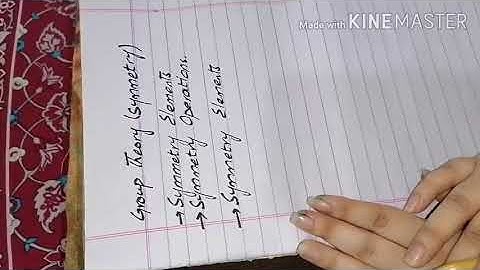 Made with KINEMASTER
Group Theory (Symmetry)
→ Symmetry Elements
→ Symmetry Operations.
→ Symmetry Elements